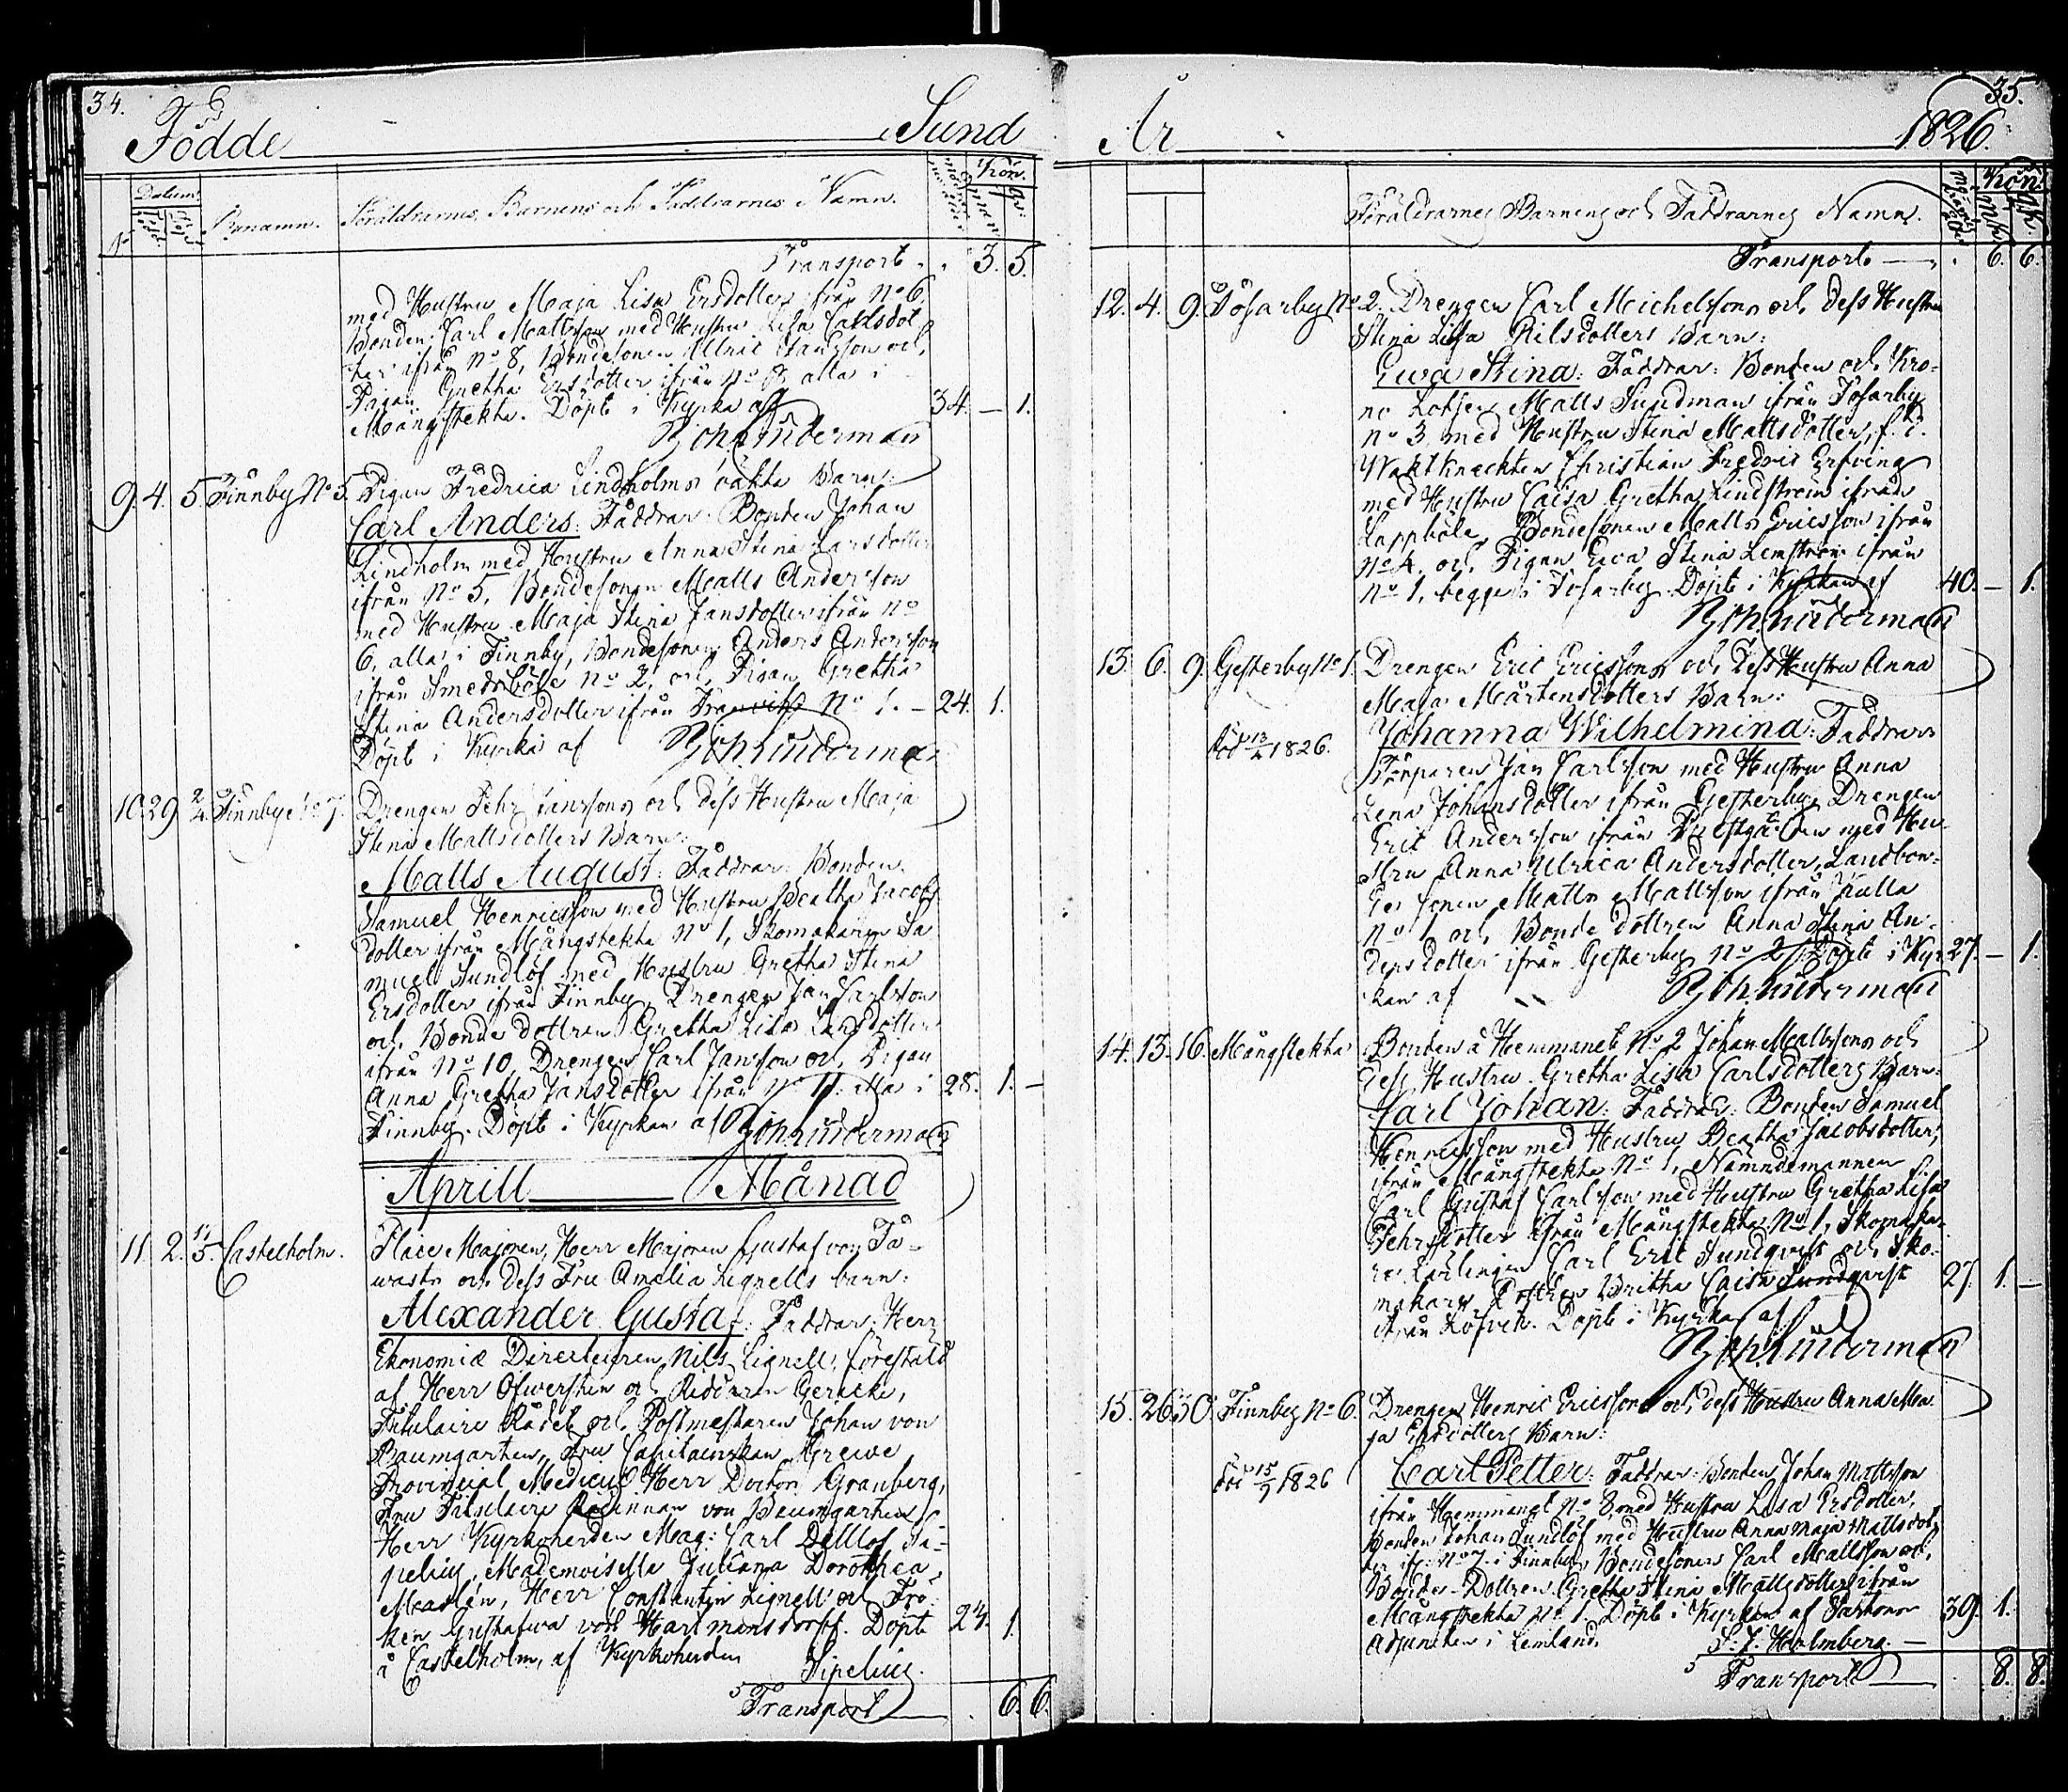 34.
Födde Sund
Datum
Kön.
No
Bynamn. Föräldrarnes, Barnens och Faddrarnes Namn.
Transport 3. 5.
med Hustru Maja Lisa Ersdotter ifrån No 6,
Bonden Carl Mattsson med Hustru Lisa Carlsdot
ter ifrån No 8, Bondesonen Ulric och
Pigan Gretha Ersdotter ifrån No alla i
Mångstekta. Döpt i Kyrka af 34. — 1.
9. 4. 5. Finnby No 5. Pigan Fredrica Lindholms oäkta Barn:
Carl Anders: Faddrar: Bonden Johan
Lindholm med Hustru Anna Stina Larsdotter
ifrån No 5, Bondesonen Matts Andersson
med Hustru Maja Stina Jansdotter ifrån No
6, alla i Finnby, Bondesonen Anders Andersson
ifrån Smedsböle No 2, och Pigan Gretha
Stina Andersdotter ifrån No 1. — 24. 1.
Döpt i Kyrka af
10. 29 2/4 Finnby No 7. Drengen Pehr Janssons och dess Hustru Maja
Stina Mattsdotters Barn:
Matts August: Faddrar: Bonden
Samuel Henricsson med Hustru Beatha Jacobs
dotter ifrån Mångstekta No 1, Skomakaren Sa
muel Sundlöf med Hustru Gretha Stina
Ersdotter ifrån Finnby, Drengen Jan Carlsson
och Bonde dottren Gretha Lisa Larsdotter
ifrån No 10, Drengen Carl Jansson och Pigan
Anna Gretha Jansdotter ifrån No 11. alla i 28. 1. —
Finnby. Döpt i Kyrkan af
Aprill Månad
11. 2. 5. Castelholm. Place Majoren, Herr Majoren Gustaf von Ta-
wasts och dess Fru Amalia Lignells barn:
Alexander Gustaf: Faddrar: Herr
Ekonomiæ Directeuren Nils Lignell, förestäld
af Herr Öfwersten och Riddaren Gericke,
Titulaire Rådet och Postmestaren Johan von
Baumgarten, Fru Capitainskan Grewe
Provincial Medicus Herr Doctor Granberg,
Fru Titulaire Rådinnan von Baumgarten
Herr Kyrkoherden Mag: Carl Detlof Si-
pelius, Mademoiselle Juliana Dorothea
Herr Constantin Lignell och Frö-
ken Gustafwa von Hartmansdorff. Döpt 24. 1.
å Castelholm, af Kyrkoherden
Sipelius.
Transport 6. 6.
35.
År 1826.
Föräldrarnes Barnens och Faddrarnes Namn.
Kön.
Transport — 6. 6.
12. 4. 9. Tosarby No 2. Drengen Carl Michelssons och dess Hustru
Stina Lisa Nilsdotters Barn:
Ewa Stina: Faddrar: Bonden och Kro-
no Lotsen Matts Sundman ifrån Tosarby
No 3 med Hustru Stina Mattsdotter, f. d.
Waktknechten Christian Fredric
med Hustru Caisa Gretha Lindström ifrån
Lappböle, Bondesonen Matts Ericsson ifrån
No 4. och Pigan Ewa Stina Lemström ifrån
No 1, begge i Tosarby. Döpt i Kyrkan af 40. — 1.
13. 6. 9. Gesterby No 1. Drengen Eric Ericssons och dess Hustru Anna
Maja Mårtensdotters Barn:
Död 1826. Johanna Wilhelmina: Faddrar:
Torparen Jan Carlsson med Hustru Anna
Lena Johansdotter ifrån Gesterby, Drengen
Eric Andersson ifrån Prestgården med Hu-
stru Anna Ulrica Andersdotter, Landbon-
de sonen Matts Mattsson ifrån Kulla
No 1 och Bonde dottren Anna Stina An-
dersdotter ifrån Gesterby No 2. Döpt i Kyr 27. — 1.
kan af
14. 13. 16. Mångstekta Bonden å Hemmanet No 2 Johan Mattssons och
dess Hustru Gretha Lisa Carlsdotters Barn:
Carl Johan: Faddrar: Bonden Samuel
Henricsson med Hustru Beatha Jacobsdotter,
ifrån Mångstekta No 1, Nämndemannen
Carl Gustaf Carlsson med Hustru Gretha Lisa
Pehrsdotter ifrån Mångstekta No 1, Skomaka-
re Lärlingen Carl Eric Sundqvist och Sko-
makare Dottren Britha Caisa Sundqvist 27 1. —
ifrån Döpt i Kyrka af
15. 26. 30. Finnby No 6. Drengen Henric Ericssons och dess Hustru Anna Ma
ja Ersdotters Barn:
Död 15/9 1826 Carl Petter: Faddrar: Bonden Johan Mattsson
ifrån Hemmanet No 8, med Hustru Lisa Ersdotter,
Bonden Johan Sundlöf med Hustru Anna Maja Mattsdot
ter ifr: No 7 i Finnby, Bondesonen Carl Mattsson och
Bonde-Dottren Gretha Stina Mattsdotter ifrån
Mångstekta No 1. Döpt i Kyrkan af Pastors 39. 1.
Adjuncten i Lemland.
Holmberg. —
Transport — 8. 8.